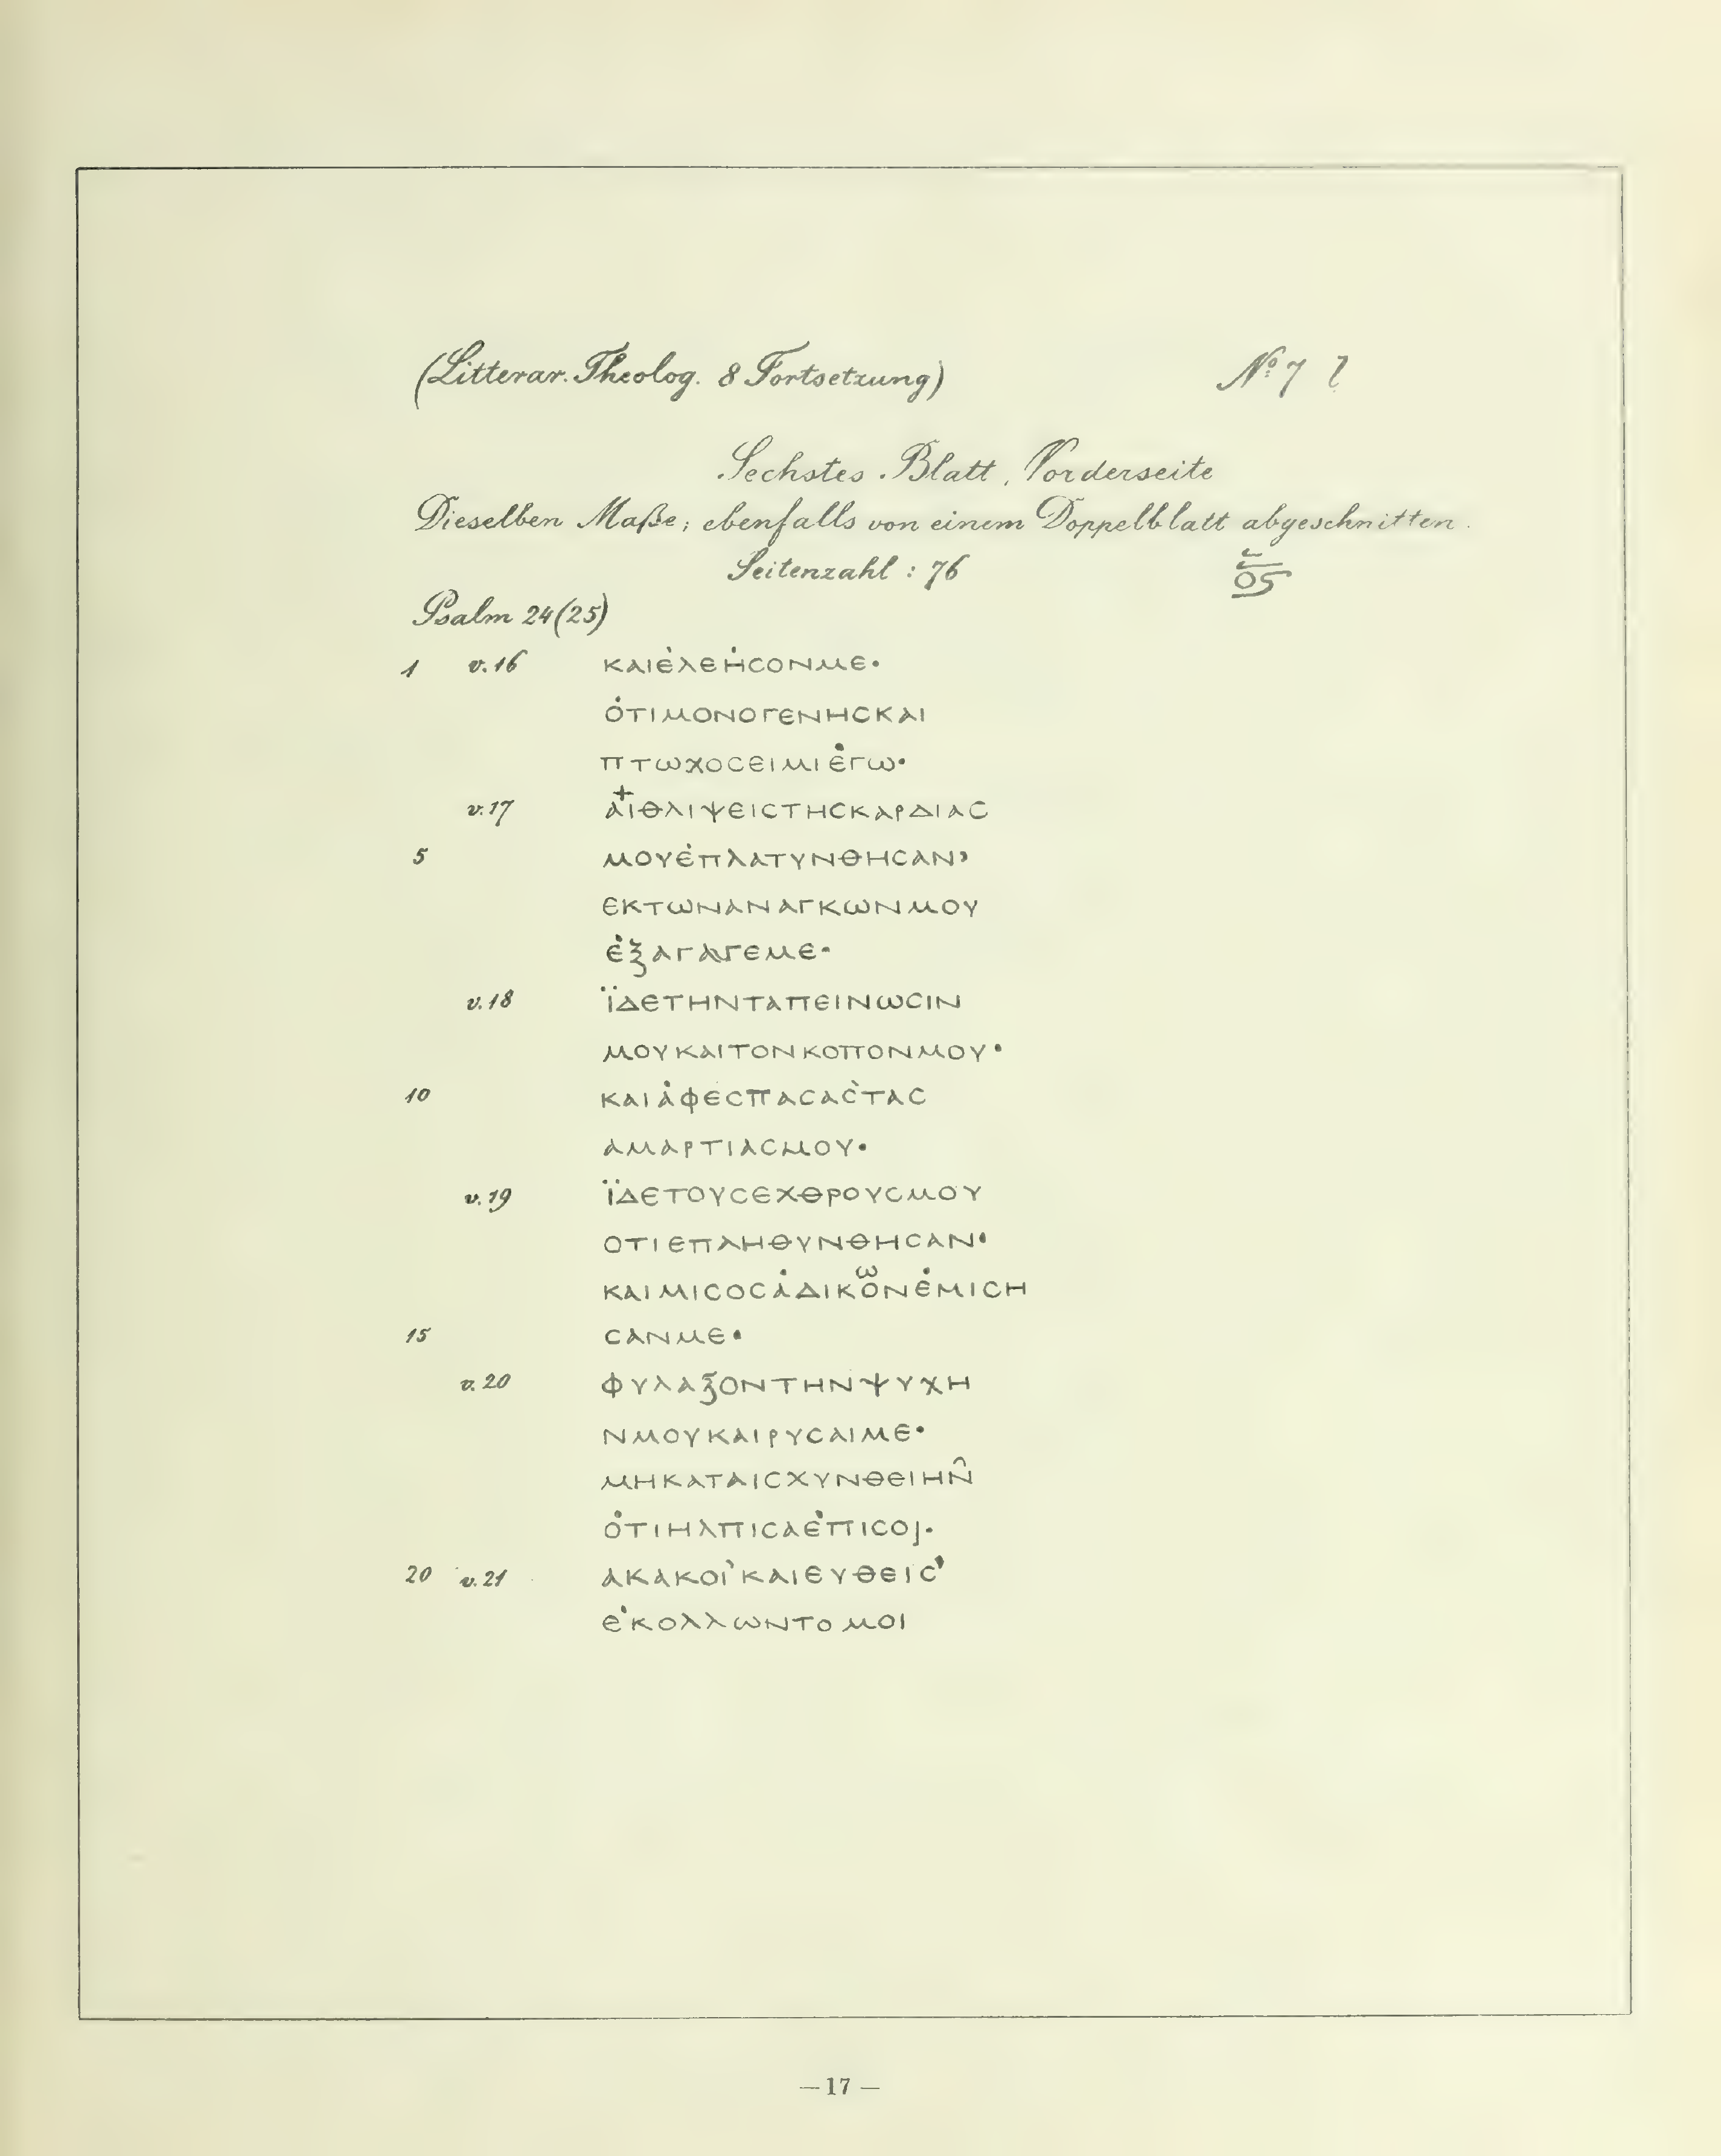 (Litterar. Theolog. 8 Fortsetzung) No 7 l
Sechstes Blatt, Vorderseite
Dieselben Maße; ebenfalls von einem Doppelblatt abgeschnitten.
Seitenzahl : 76 Ος
Psalm 24(25)
1 v.16 ΚΑΙἐΛΕΗ̇ϹΟΝΜΕ·
Ο̇ΤΙΜΟΝΟΓΕΝΗϹΚΑΙ
ΠΤΩΧΟϹΕΙΜΙΕ̇ΓΩ·
v.17 ΑΙΘΛΙΨΕΙϹΤΗϹΚΑΡΔΙΑϹ
5 ΜΟΥΕ̇ΠΛΑΤΥΝΘΗϹΑΝ’
ΕΚΤΩΝΑΝΑΓΚΩΝΜΟΥ
Ε̇ΞΑΓΑΓΕΜΕ·
v.18 ΪΔΕΤΗΝΤΑΠΕΙΝΩϹΙΝ
ΜΟΥΚΑΙΤΟΝΚΟΠΟΝΜΟΥ·
10 ΚΑΙΑ̇ΦΕϹΠΑϹΑϹ̀ΤΑϹ
ΑΜΑΡΤΙΑϹΜΟΥ·
v.19 ΪΔΕΤΟΥϹΕΧΘΡΟΥϹΜΟΥ
ΟΤΙΕΠΛΗΘΥΝΘΗϹΑΝ·
ΚΑΙΜΙϹΟϹΑ̇ΔΙΚΟͮΝΕ̇ΜΙϹΗ
15 ϹΑΝΜΕ·
v.20 ΦΥΛΑΞΟΝΤΗΝΨΥΧΗ
ΝΜΟΥΚΑΙΡΥϹΑΙΜΕ·
ΜΗΚΑΤΑΙϹΧΥΝΘΕΙΗΝ̑
Ο̇ΤΙΗΛΠΙϹΑΕ̇ΠΙϹΟΙ·
20 v.21 ΑΚΑΚΟἸΚΑΙΕΥΘΕΙϹ’
Ε̇ΚΟΛΛΩΝΤΟΜΟΙ
— 17 —